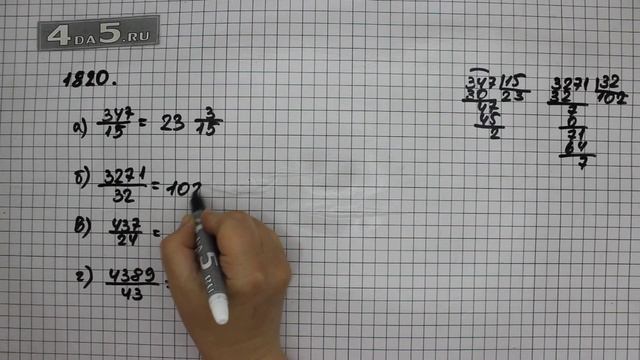 4DA5.RU
1820.
а) 347/15 = 23 3/15
б) 3271/32 = 102
в) 437/24 =
г) 4389/43 =
347 | 15
30 | 23
47
45
2
3271 | 32
32 | 102
7
0
71
64
7